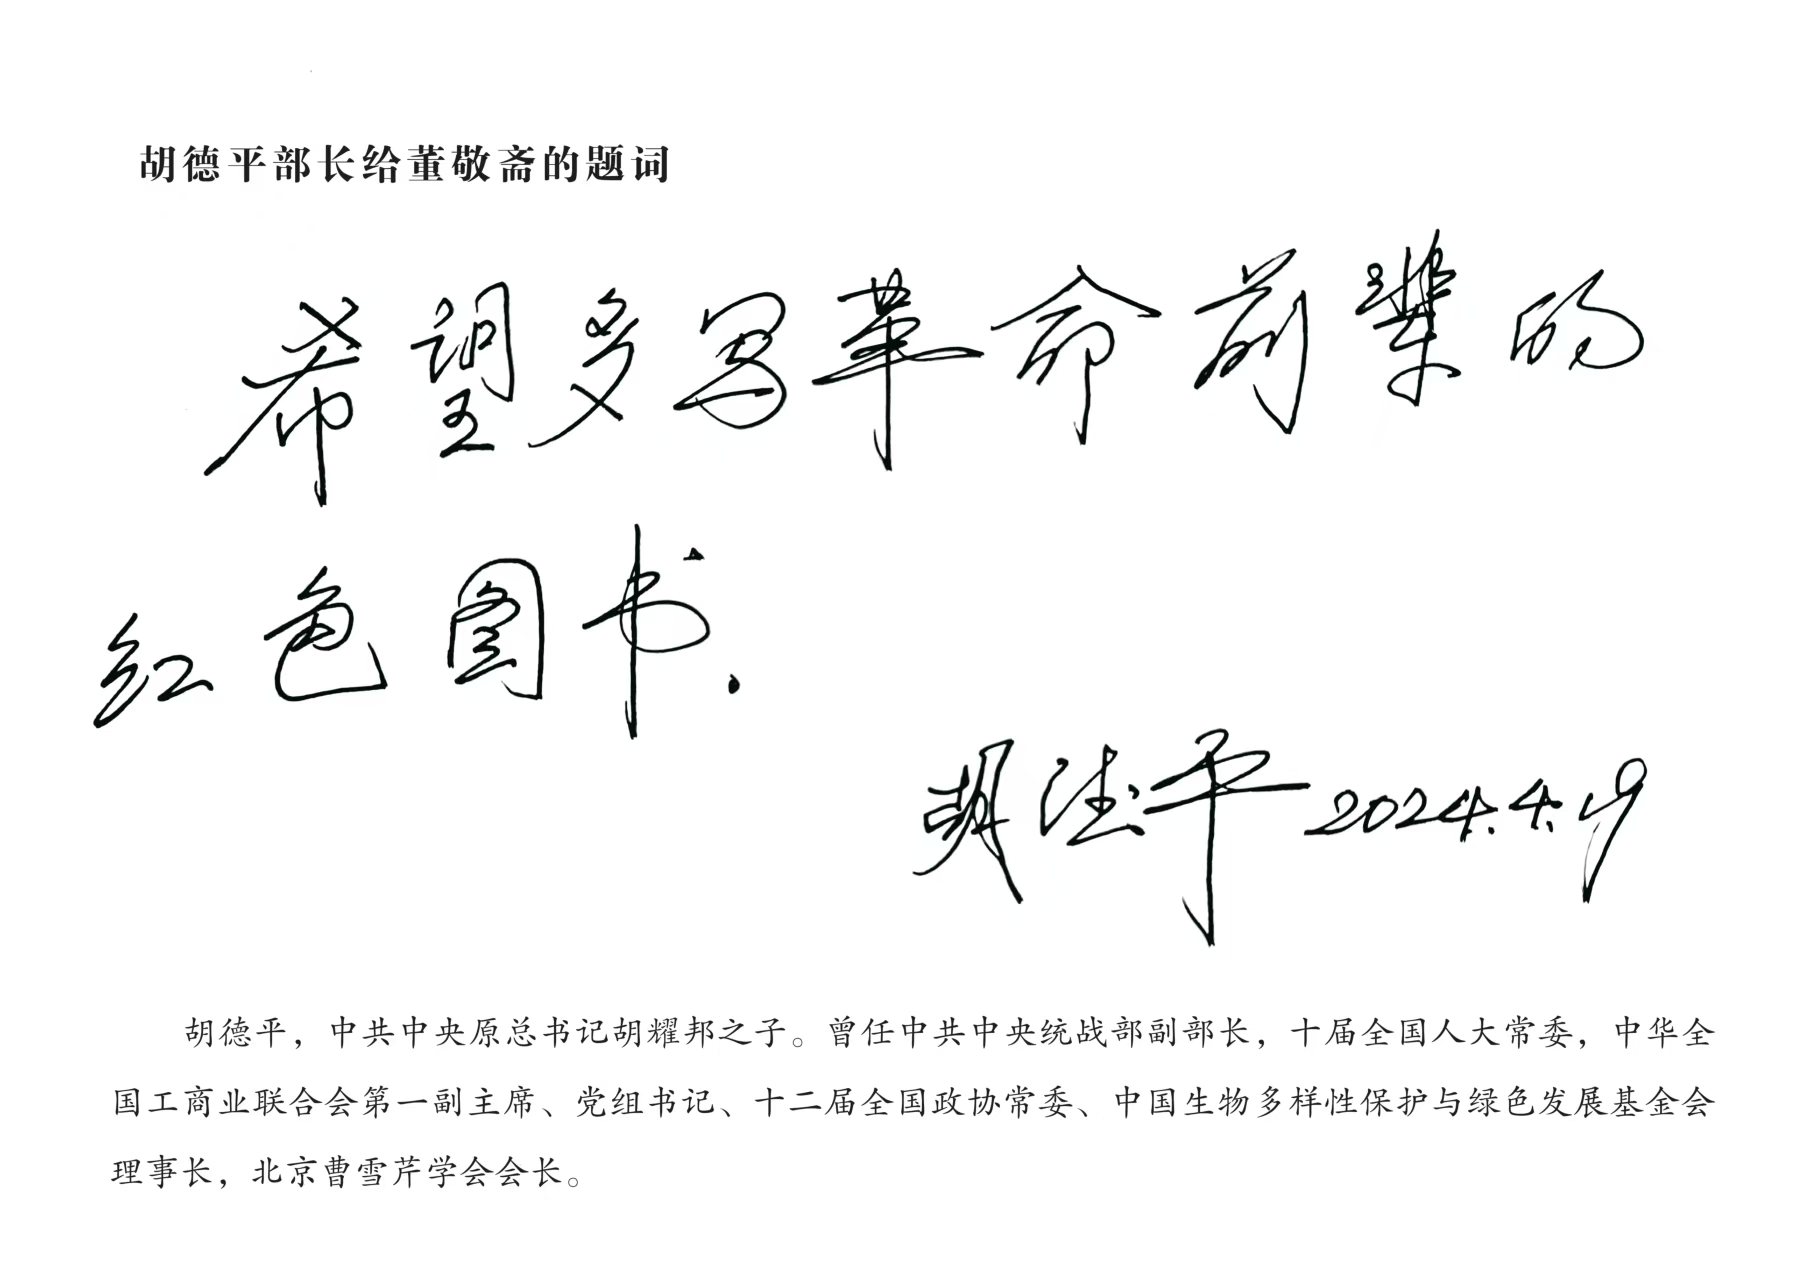 胡德平部长给董敬斋的题词
希望多写革命前辈的
红色图书.
胡德平 2024.4.19
胡德平，中共中央原总书记胡耀邦之子。曾任中共中央统战部副部长，十届全国人大常委，中华全
国工商业联合会第一副主席、党组书记、十二届全国政协常委、中国生物多样性保护与绿色发展基金会
理事长，北京曹雪芹学会会长。